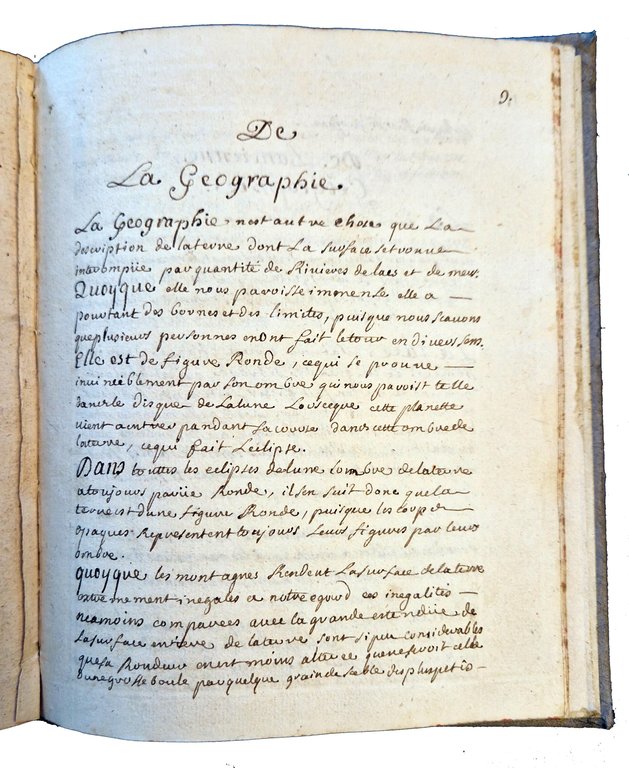 9.
De
La Geographie.
La Geographie nest autre chose que La
description de laterre dont La surface setrouve
interompüe par quantité de Rivieres de lacs et de mers.
Quoyque elle nous paroisse immense elle a
pourtant des bornes et des limites, puisque nous scavons
queplusieurs personnes enont fait letour en divers sens.
Elle est de figure Ronde, cequi se prouve
invinciblement par son ombre qui nous paroist telle
dans le disque de Lalune Lorsceque cette planette
vient aentrer pandant sa course dans cette ombre de
laterre, cequi fait Leclipse.
Dans touttes les eclipses delune lombre delaterre
atoujours parüe Ronde, ilsen suit donc quela
terre est dune figure Ronde, puisque les corps
opaques Representent toujours Leurs figures par leurs
ombre.
quoyque les montagnes Rendent Lasurface delaterre
extremement inegales a notre egard ces inegalités
neamoins comparées avec la grande estendüe de
Lasurface entiere de laterre sont sipeu considerables
quesa Rondeur enest moins alterée queneseroit celle
dunegrosse boule parquelque grain de sable desplus petis